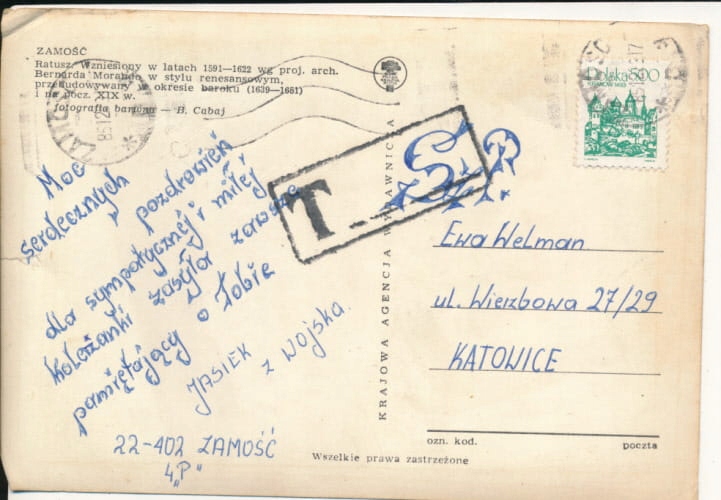 ZAMOŚĆ
Ratusz. Wzniesiony w latach 1591—1622 wg proj. arch.
Bernarda Morando w stylu renesansowym,
przebudowywany w okresie baroku (1639—1651)
i na pocz. XIX w.
fotografia barwna — B. Cabaj
Moc
serdecznych pozdrowień
dla sympatycznej i miłej
koleżanki zasyła zawsze
pamiętający o Tobie
JASIEK z Wojska.
22-402 ZAMOŚĆ
4„P”
KRAJOWA AGENCJA WYDAWNICZA
T.
Polska 500
Sz.P.
Ewa Welman
ul. Wierzbowa 27/29
KATOWICE
ozn. kod. poczta
Wszelkie prawa zastrzeżone